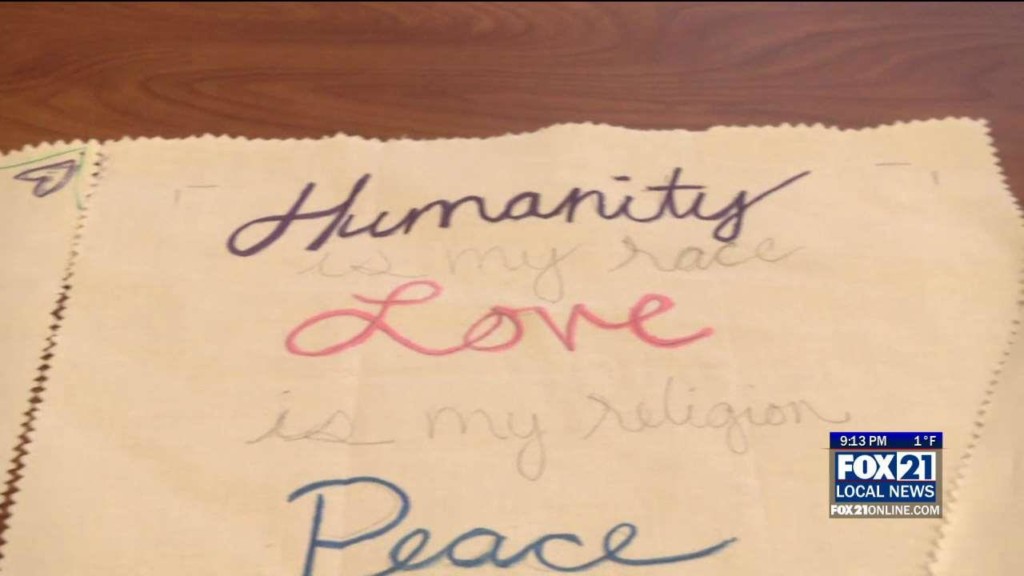 Humanity
is my race
Love
is my religion
Peace
9:13 PM 1°F
FOX 21
LOCAL NEWS
FOX21ONLINE.COM